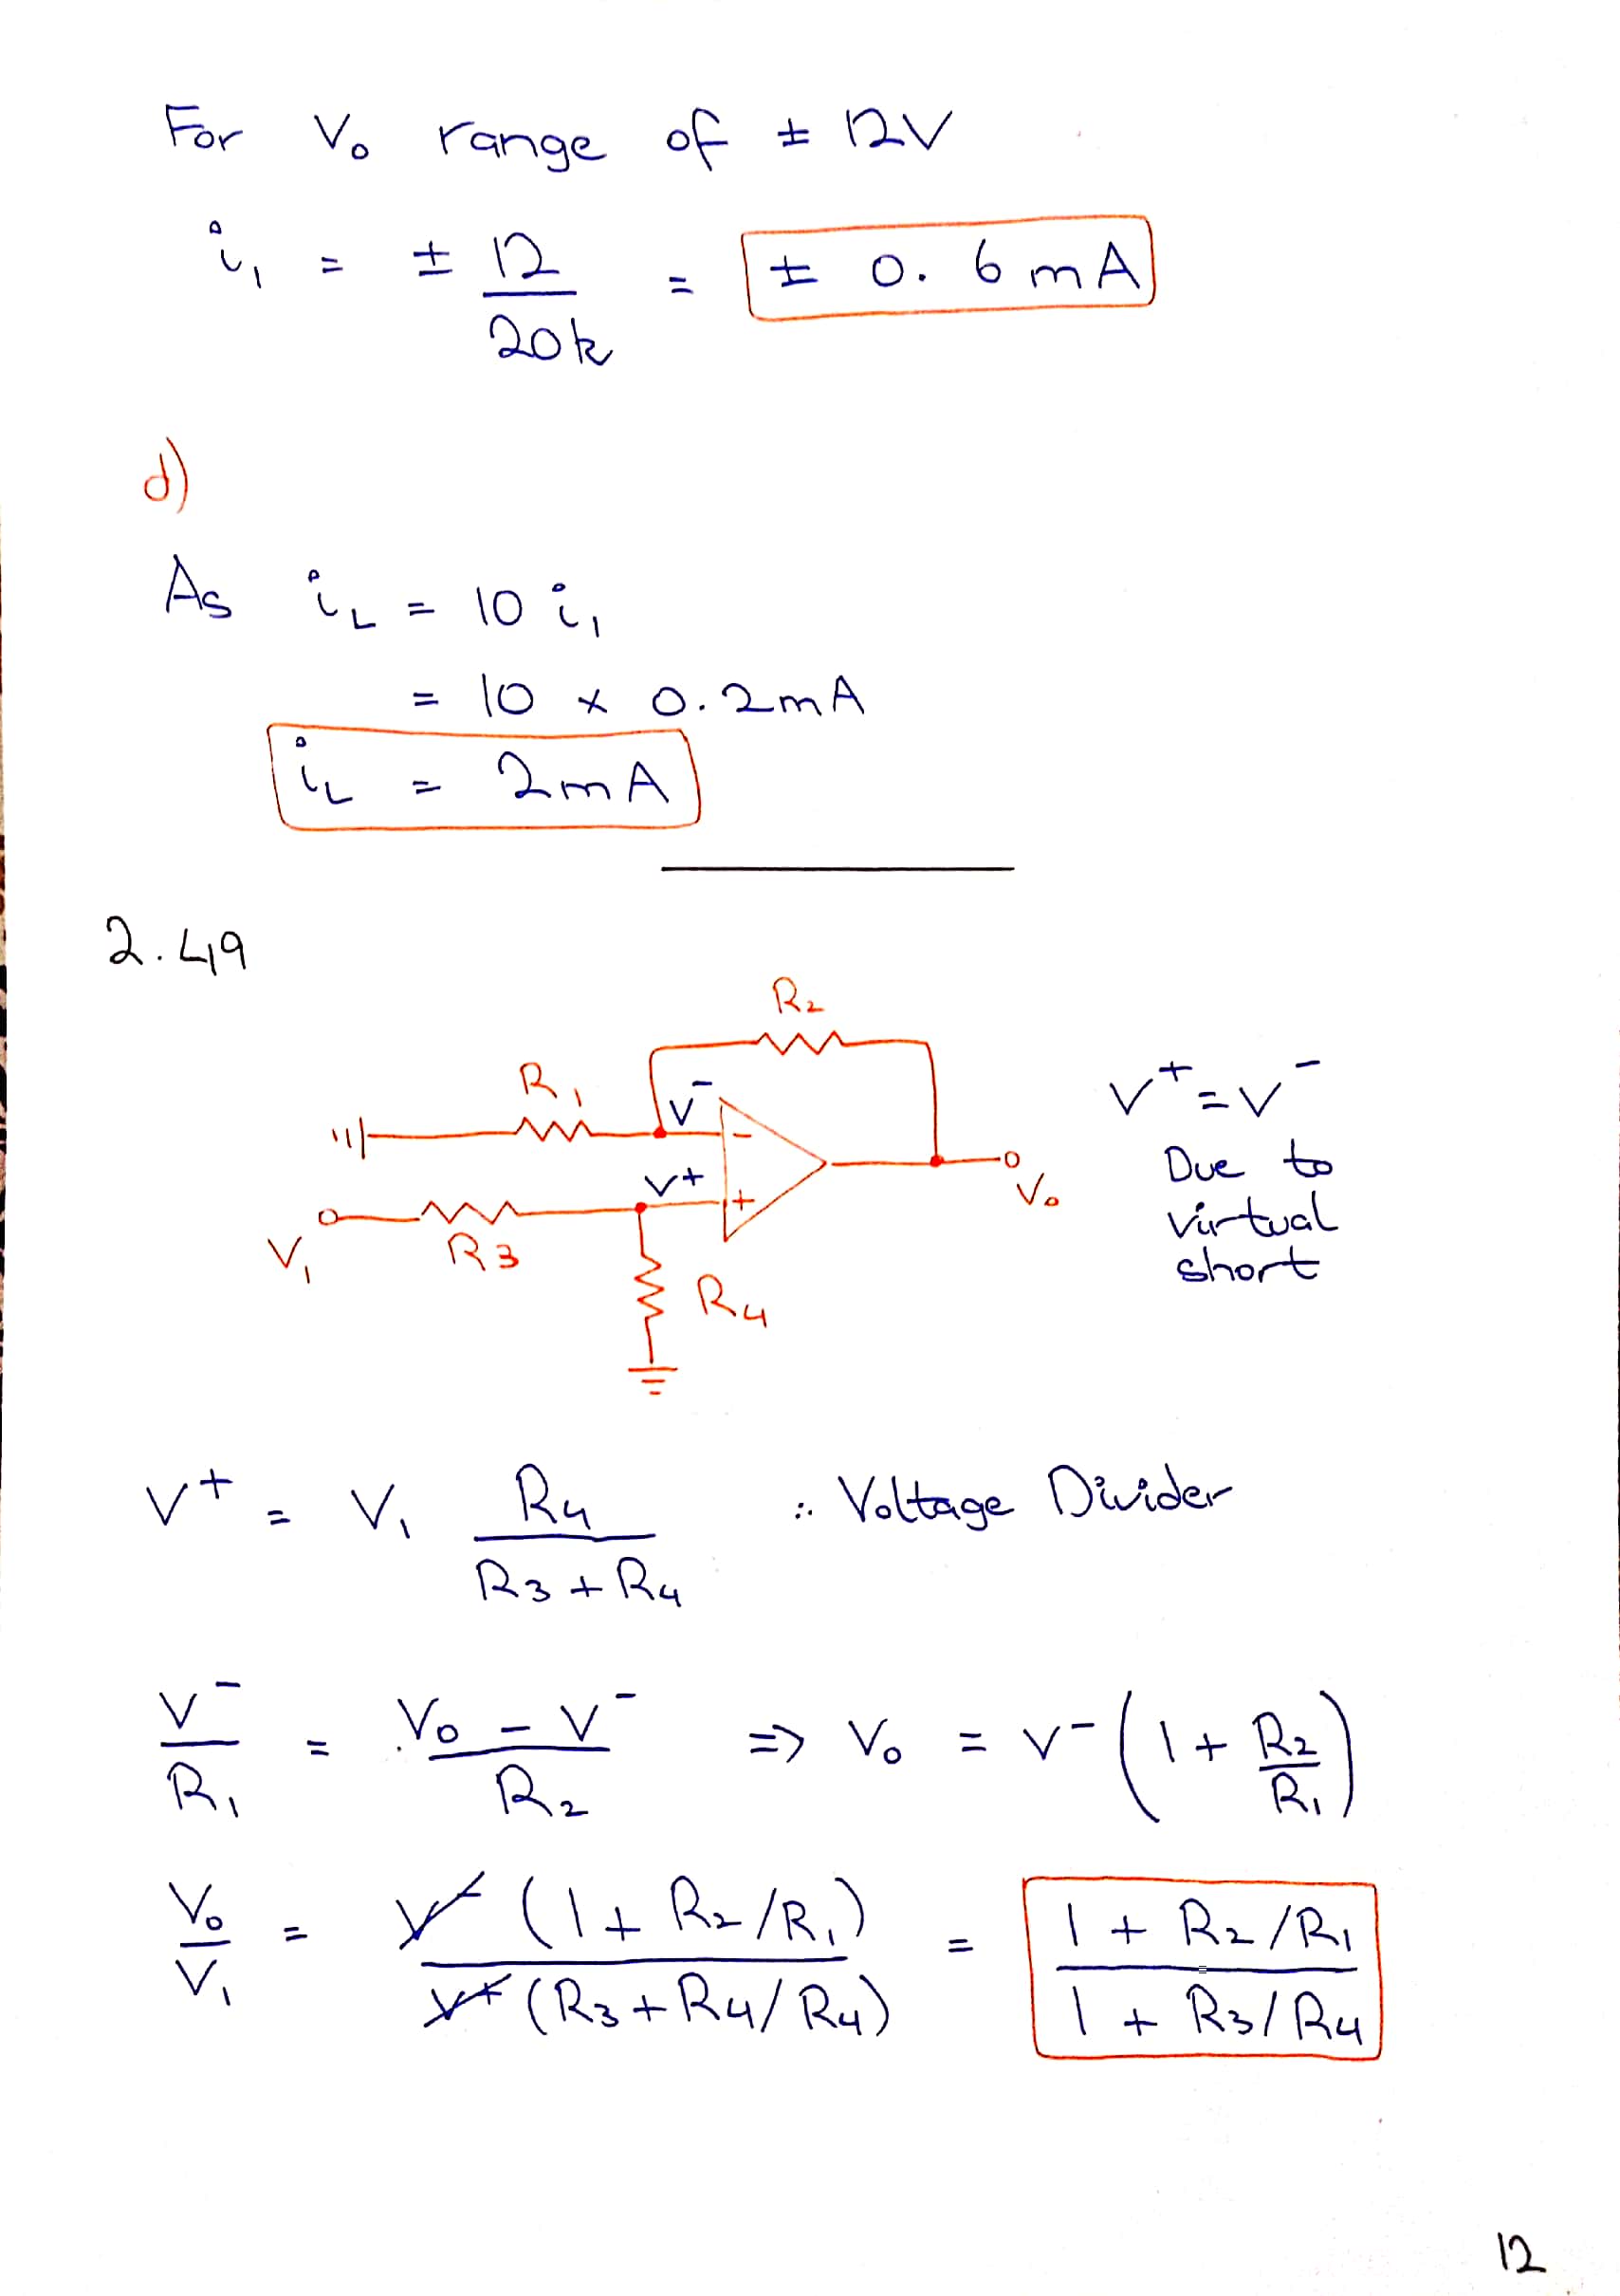 For Vo range of ± 12V
i₁ = ± 12/20k = ± 0.6mA
d)
As i_L = 10 i₁
= 10 × 0.2mA
i_L = 2mA
2.49
R₂
R₁
V⁻
V⁺ = V⁻
−
Due to
V⁺
+
Vo
virtual
V₁
R3
short
R₄
V⁺ = V₁ R₄/R₃+R₄ ∴ Voltage Divider
V⁻/R₁ = Vo − V⁻/R₂ ⇒ Vo = V⁻(1 + R₂/R₁)
Vo/V₁ = V⁻(1 + R₂/R₁)/V⁺(R₃+R₄/R₄) = 1 + R₂/R₁/1 + R₃/R₄
12